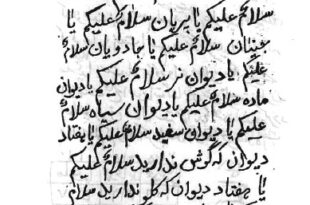 سلام علیکم یا پریان سلام علیکم یا
جنیان سلام علیکم یا جادویان سلام
علیکم یا دیوان نر سلام علیکم یا دیوان
ماده سلام علیکم یا دیوان سیاه سلام
علیکم یا دیوان سفید سلام علیکم یا هفتاد
دیوان که گوش ندارید سلام علیکم
یا هفتاد دیوان که گلو ندارید سلام